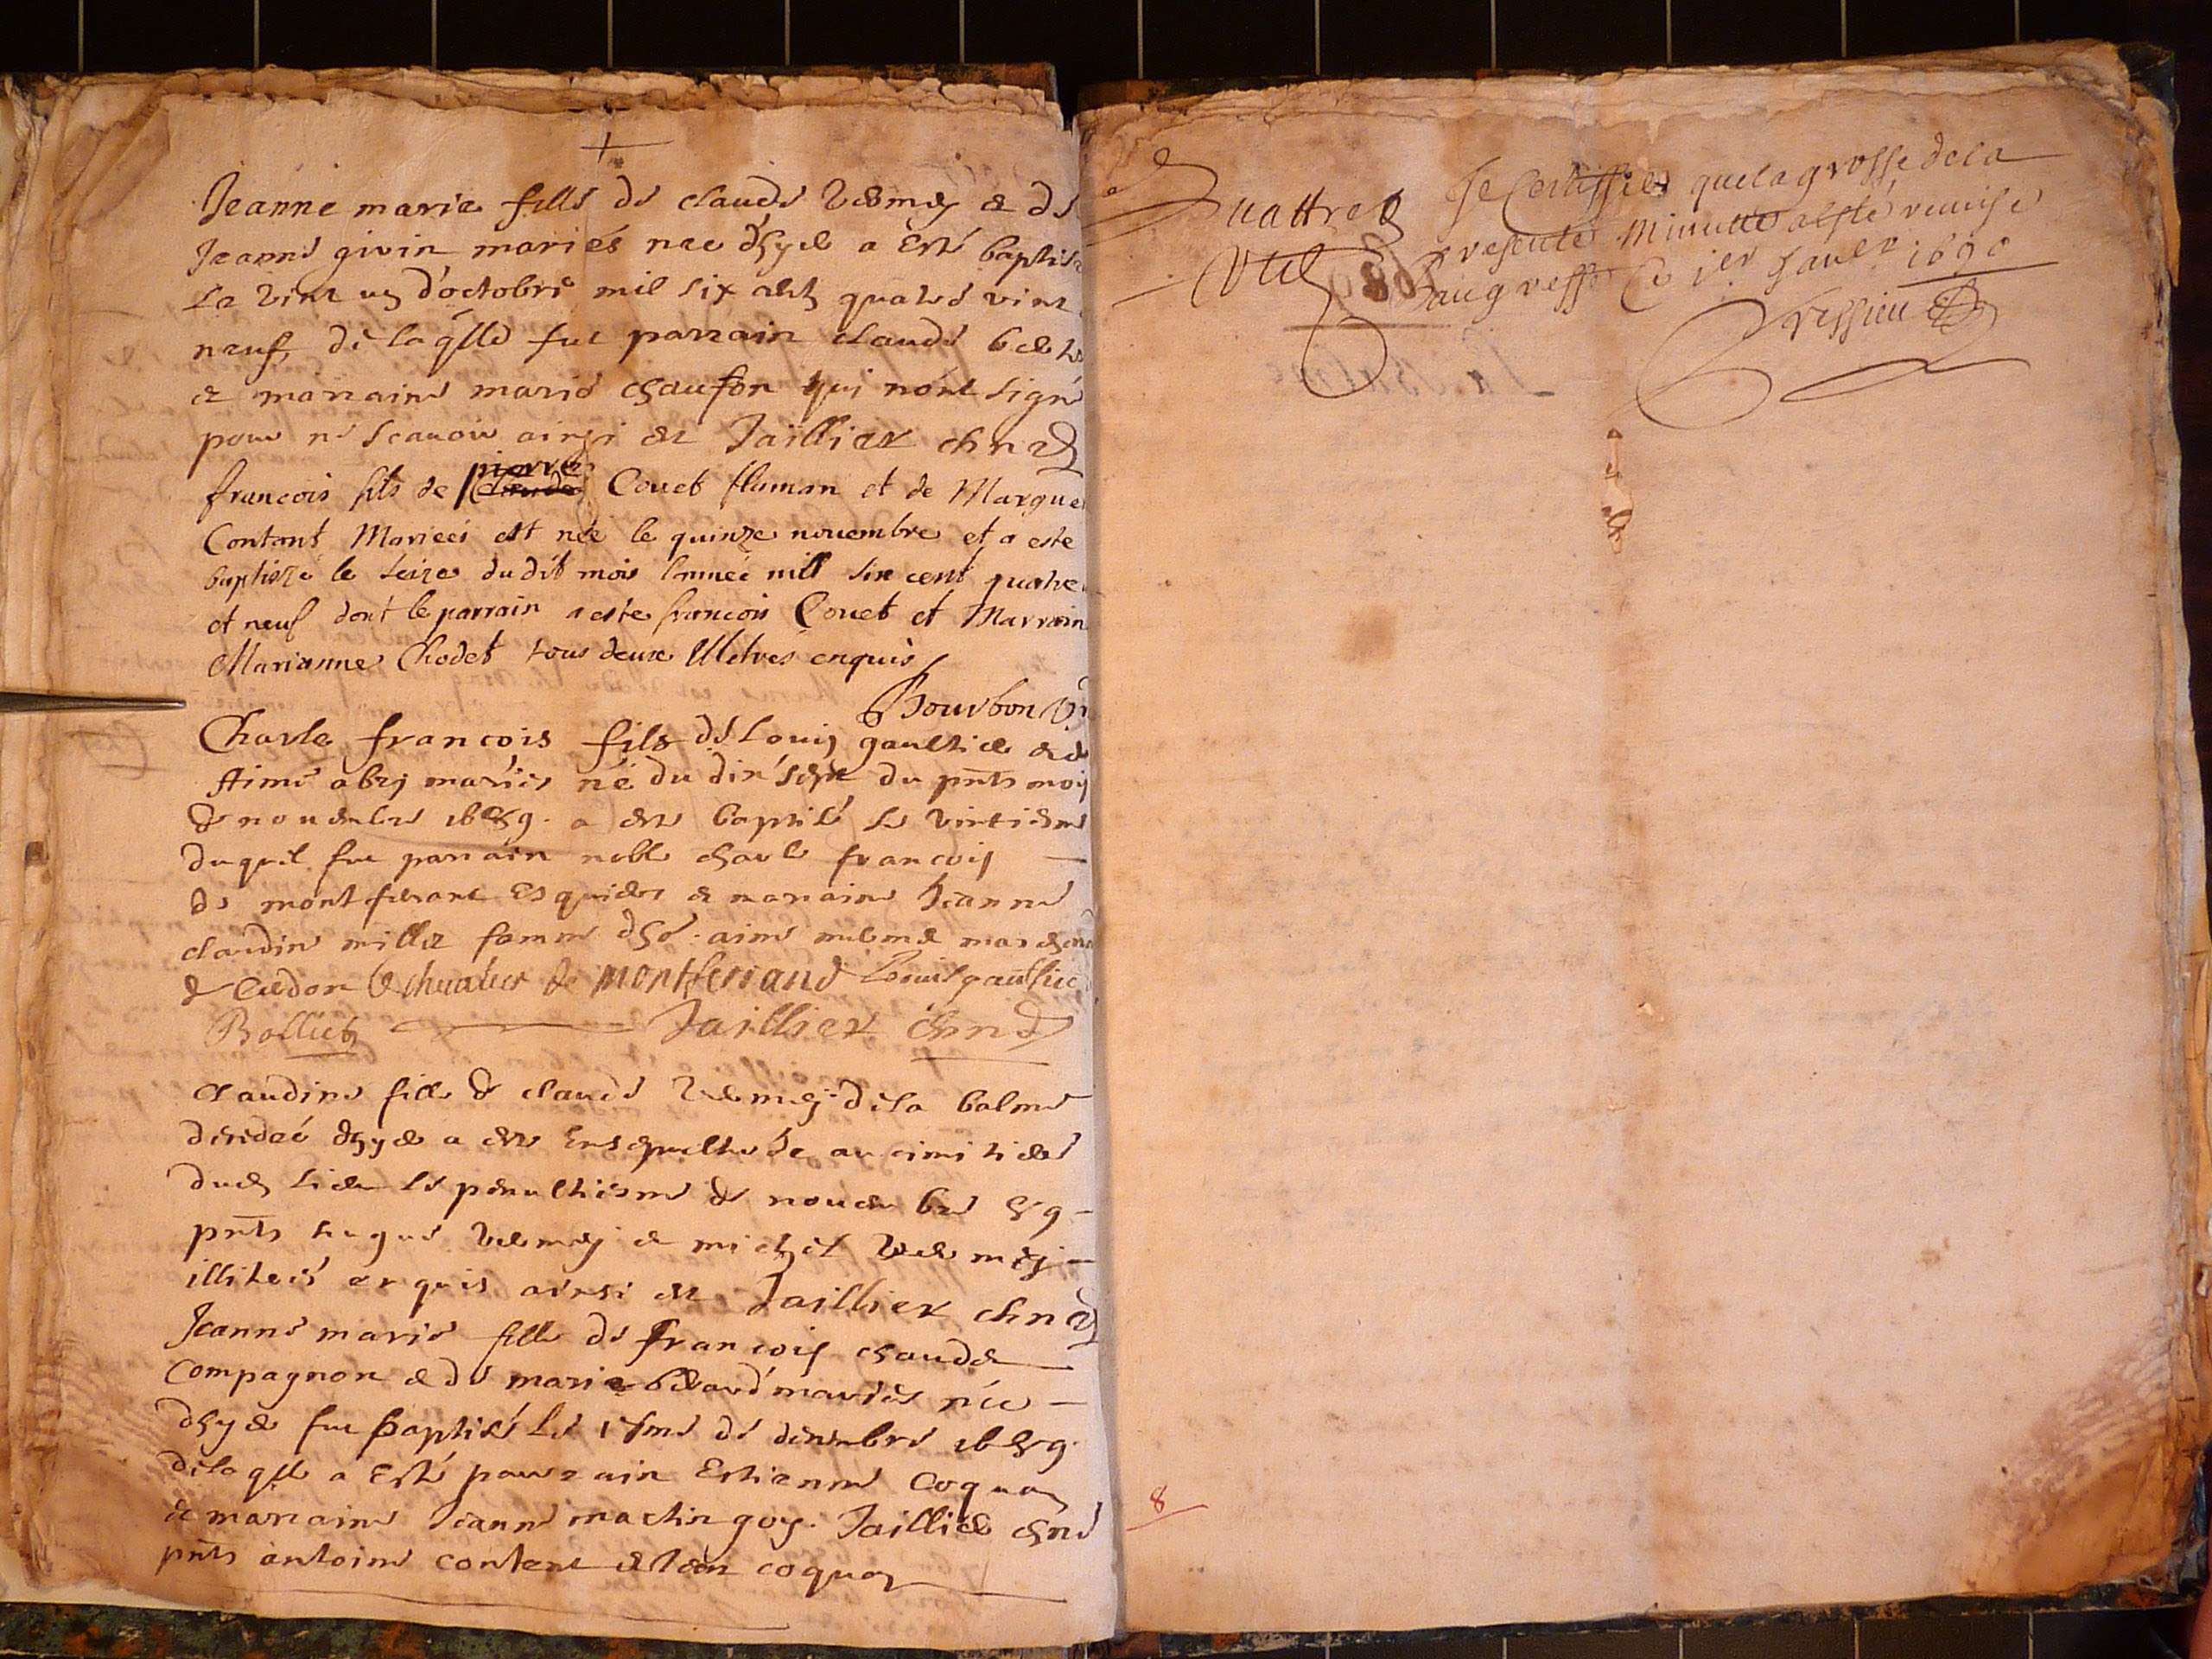 Jeanne marie fille de claude vermey & de
Jeanne givin mariés née dhyer a esté baptisé
le vint un d'octobre mil six cent quatre vint
neuf de laqlle fut parrain claude
et marraine marie chaufon qui nont signé
pour ne scauoir ainsi est Jaillier
francois fils de pierre Couet et de Margue
Contant Mariees est née le quinze nouembre et a este
baptizé le seize du dit mois lannéé mill six cent quatre
et neuf dont le parrain a este francois Couet et Marrain
Marianne Chodet tous deux illitres enquis
Bourbon
Charle francois fils de Louis gaultier & de
Aime abry mariés né du dix sept du pnt mois
de nouembre 1689 a esté baptisé le vintiesme
duquel fut parrain noble charle francois
de montferrant Esquier & marraine Jeanne
claudine millet femme aime
de Cerdon Le cheualier de montferrand Louis gaultier
Bolliet Jaillier
claudine fille de claude vermey de la balme
décédéé dhyer a esté Ensepulturée au cimitiere
dud lieu le penultiesme de nouembre 89
pnts hugue vermey & michel vermey
illiterés enquis ainsi est Jaillier
Jeanne marie fille de francois chaudet
compagnon & de marie mariés née
dhyer fut baptisée le de decembre 1689
de laqlle a esté parrain Estienne Coquan
& marraine Jeanne martin goy. Jaillier
pnts antoine content & Jean coquan
quattre
Je Certiffie que la grosse de la
presente Minutte a esté remise
au greffe ce jer januer 1690
Tressieu
8